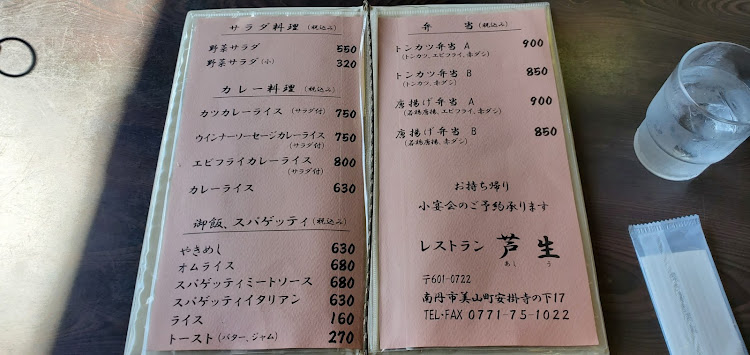 サラダ料理 (税込み)
野菜サラダ 550
野菜サラダ(小) 320
カレー料理 (税込み)
カツカレーライス (サラダ付) 750
ウインナーソーセージカレーライス 750
(サラダ付)
エビフライカレーライス 800
(サラダ付)
カレーライス 630
御飯、スパゲッティ (税込み)
やきめし 630
オムライス 680
スパゲッティミートソース 680
スパゲッティイタリアン 630
ライス 160
トースト(バター、ジャム) 270
弁当 (税込み)
トンカツ弁当 A 900
(トンカツ、エビフライ、赤ダシ)
トンカツ弁当 B 850
(トンカツ、赤ダシ)
唐揚げ弁当 A 900
(若鶏唐揚、エビフライ、赤ダシ)
唐揚げ弁当 B 850
(若鶏唐揚、赤ダシ)
お持ち帰り
小宴会のご予約承ります
レストラン 芦生
あしう
〒601-0722
南丹市美山町安掛寺の下17
TEL・FAX 0771-75-1022